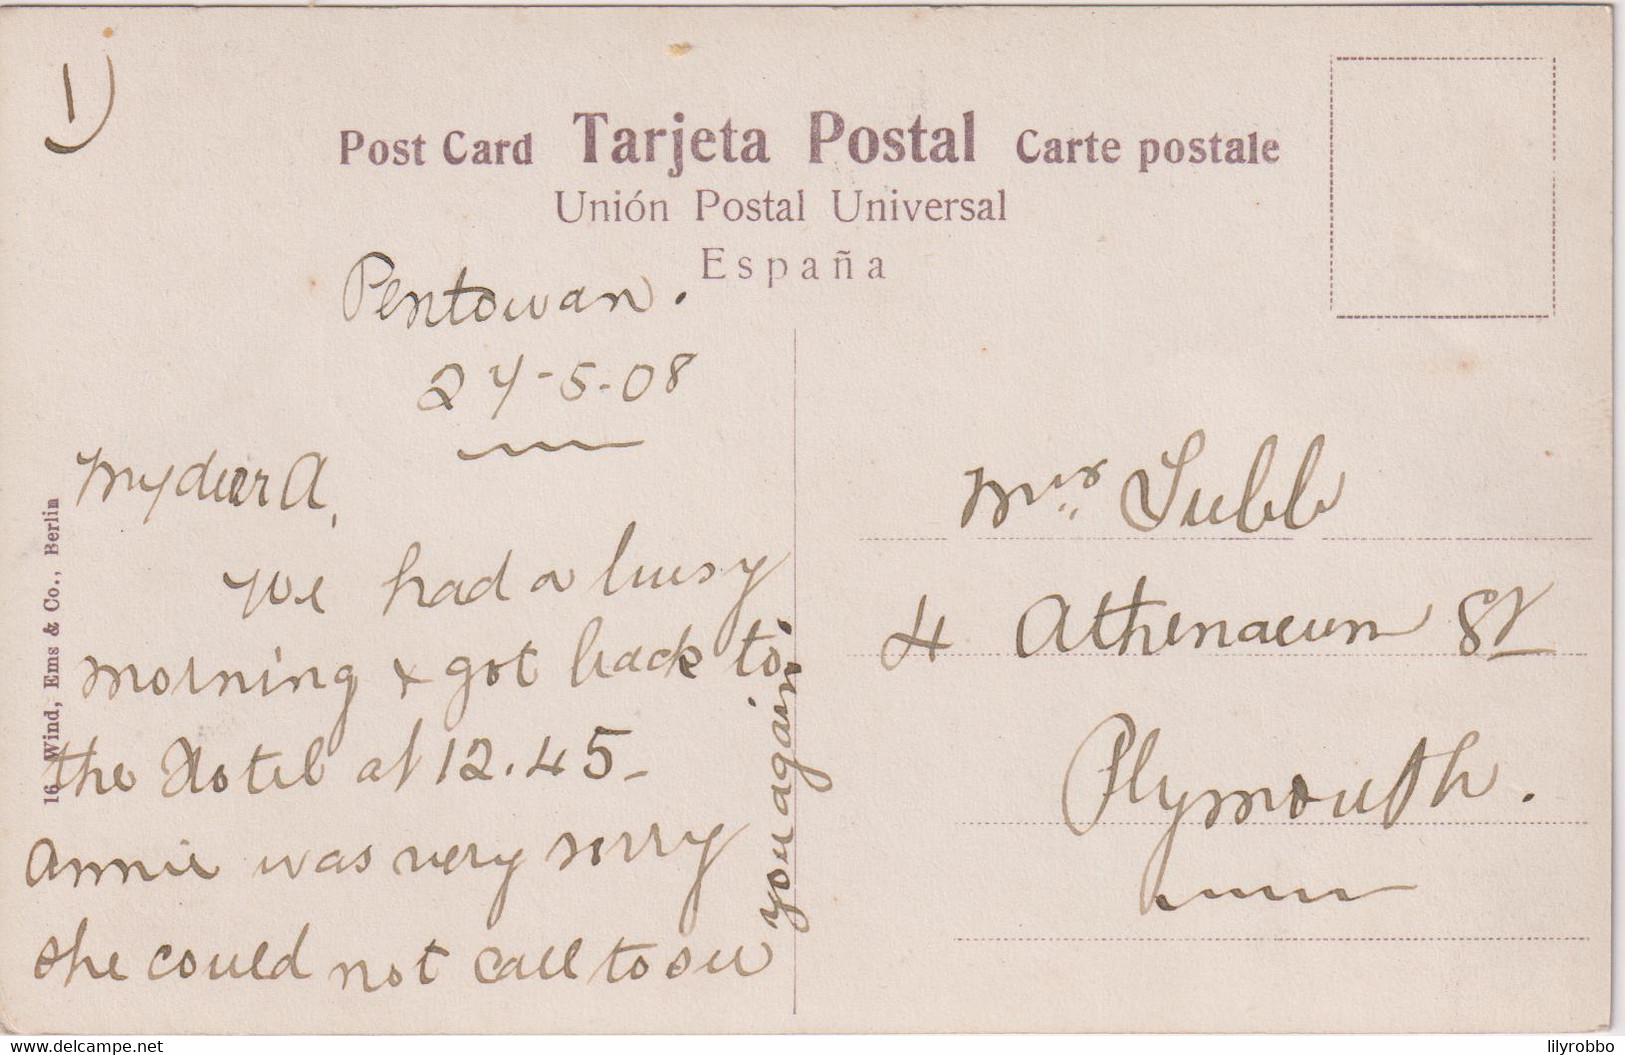 1)
Post Card Tarjeta Postal Carte postale
Unión Postal Universal
España
Pentowan.
24-5-08
My dear A,
We had a busy
morning & got back to
the Hotel at 12.45-
Annie was very sorry
she could not call to see
you again.
Mrs Tubb
4 Athenaeum St
Plymouth.
16 Wind, Ems & Co., Berlin
delcampe.com
lilyrobbo